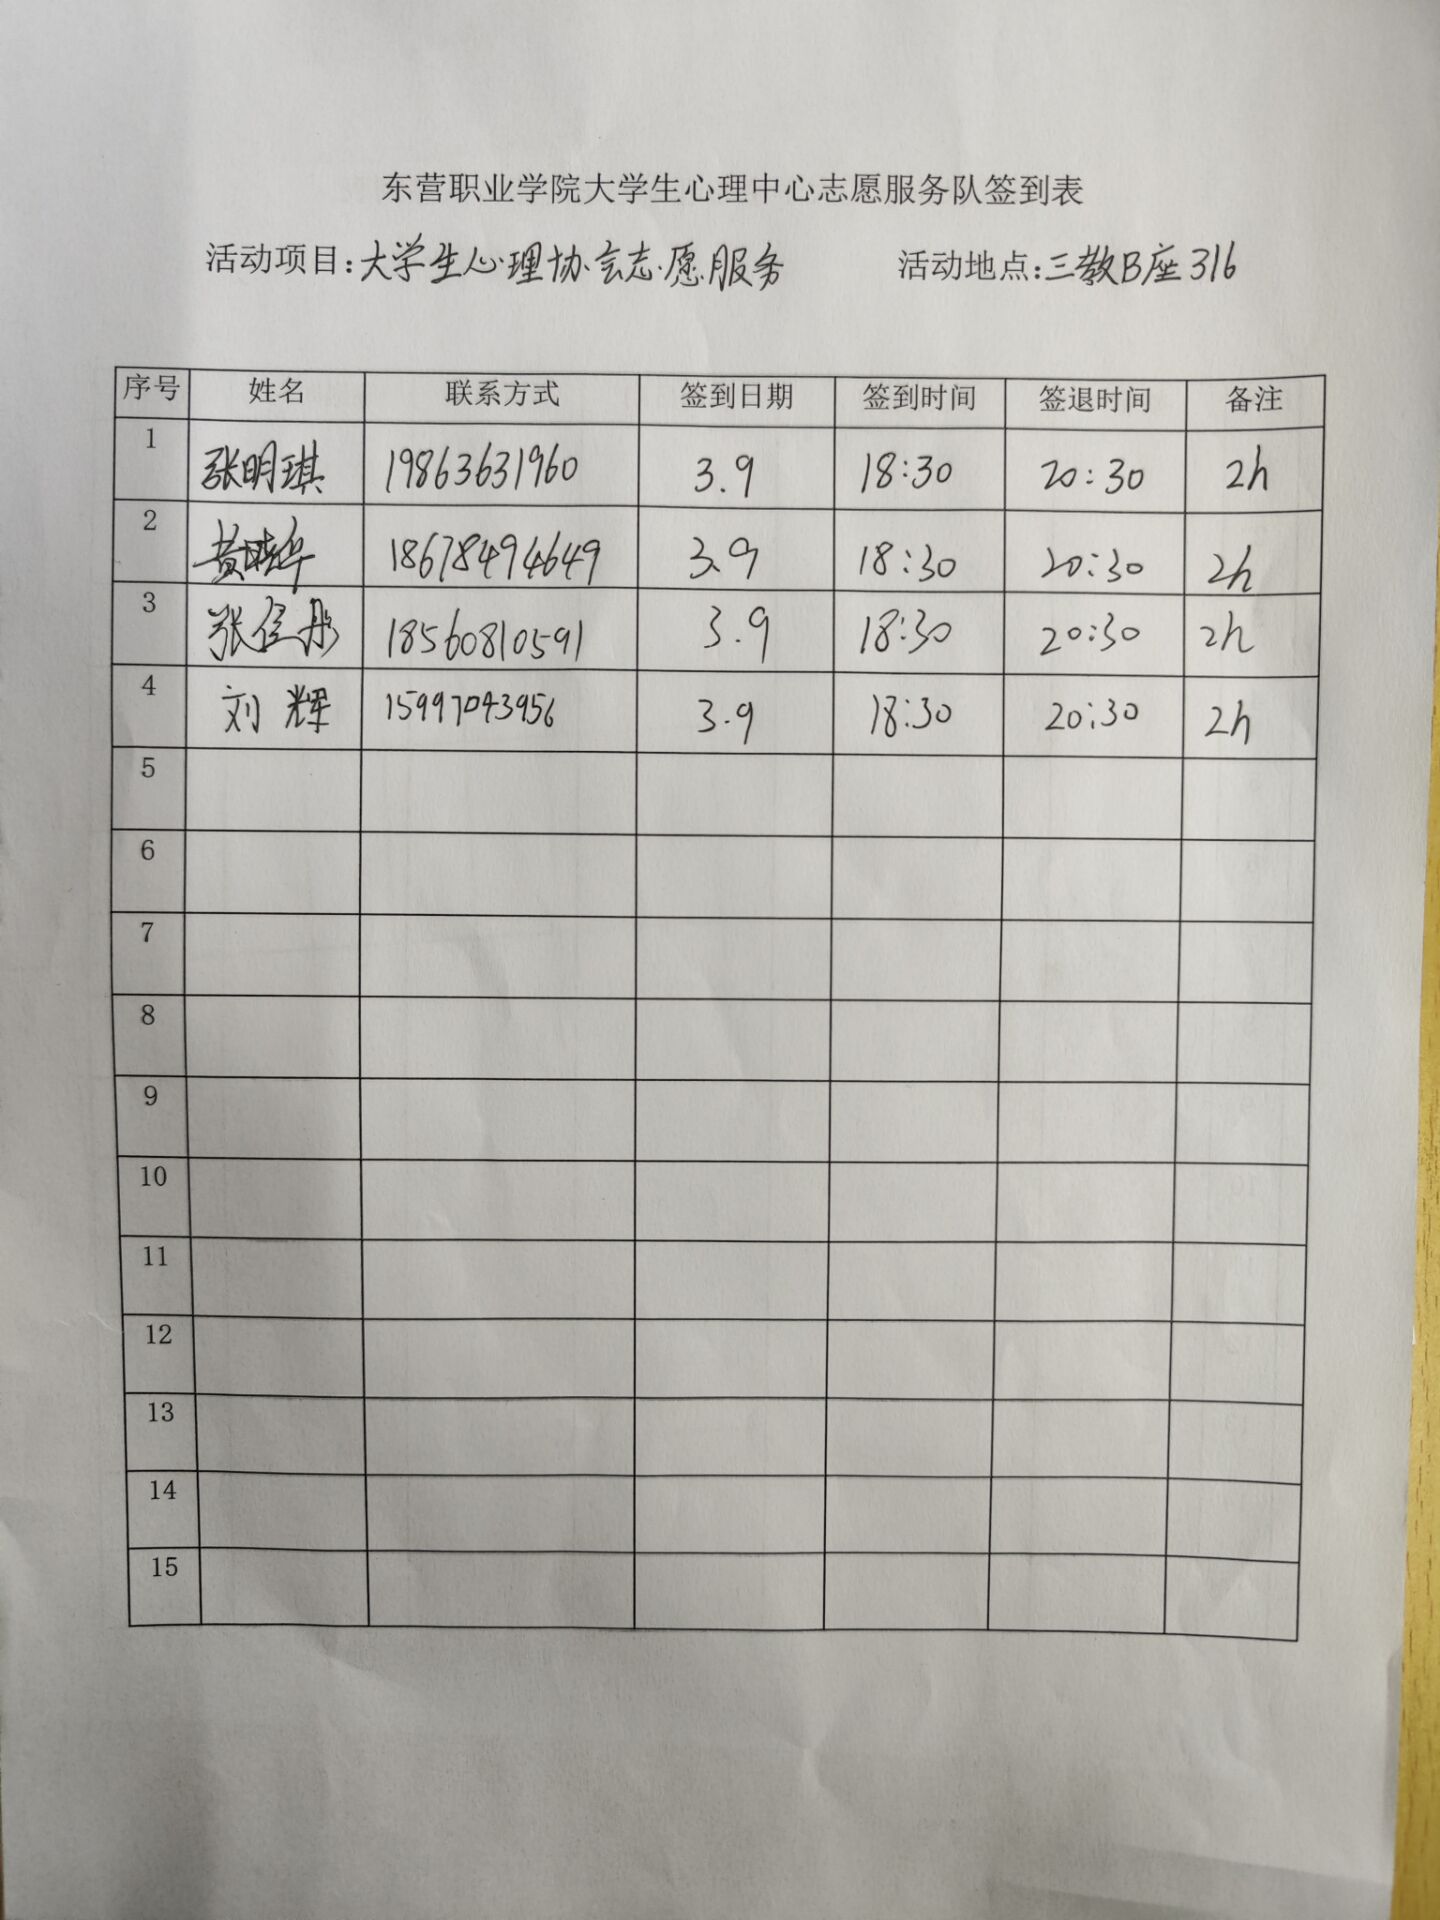 东营职业学院大学生心理中心志愿服务队签到表
活动项目:大学生心理协会志愿服务 活动地点:三教B座316
序号 姓名 联系方式 签到日期 签到时间 签退时间 备注
1 张明琪 19863631960 3.9 18:30 20:30 2h
2 黄晓华 18678494649 3.9 18:30 20:30 2h
3 张佳彤 18560810591 3.9 18:30 20:30 2h
4 刘辉 15997043956 3.9 18:30 20:30 2h
5
6
7
8
9
10
11
12
13
14
15